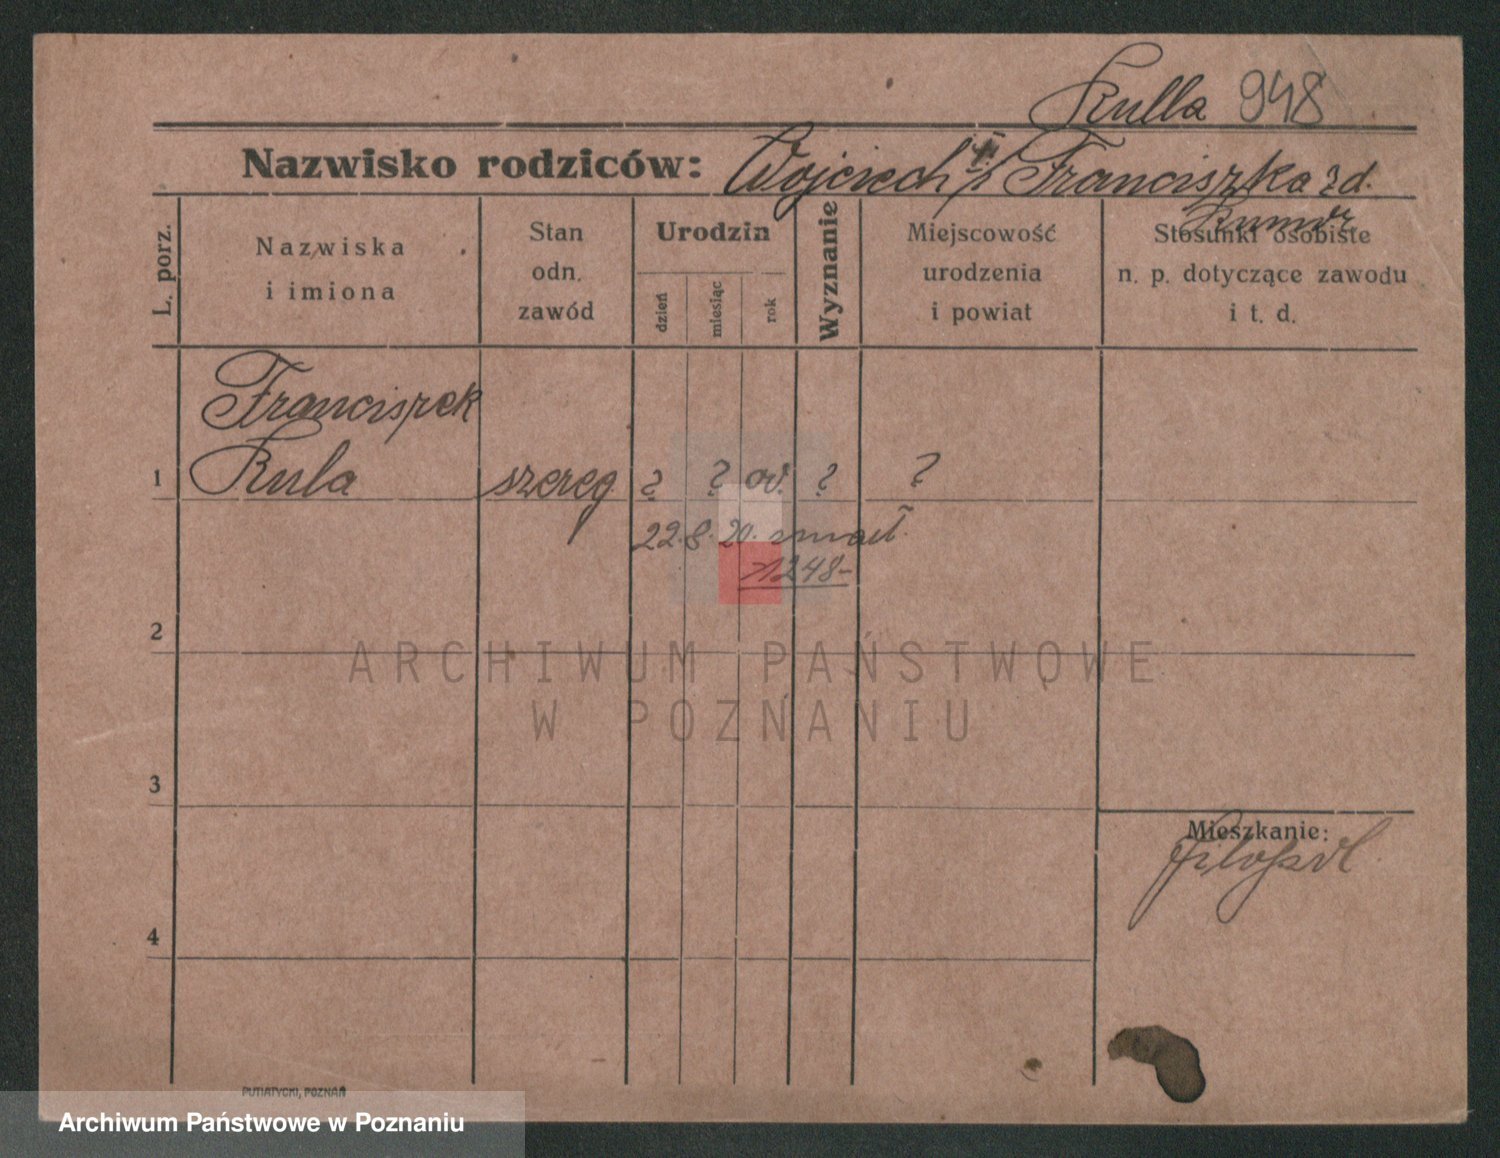 Kulla 948
Nazwisko rodziców: Wojciech i Franciszka zd.
L. porz.
Nazwiska
i imiona
Stan
odn.
zawód
Urodzin
dzień
miesiąc
rok
Wyznanie
Miejscowość
urodzenia
i powiat
Stosunki osobiste
n. p. dotyczące zawodu
i t. d.
Franciszek
1 Kula szereg ? ? ? ?
22.8.20. zmarł
1248-
2
ARCHIWUM PAŃSTWOWE
W POZNANIU
3
Mieszkanie:
4
PUTIATYCKI, POZNAŃ
Archiwum Państwowe w Poznaniu